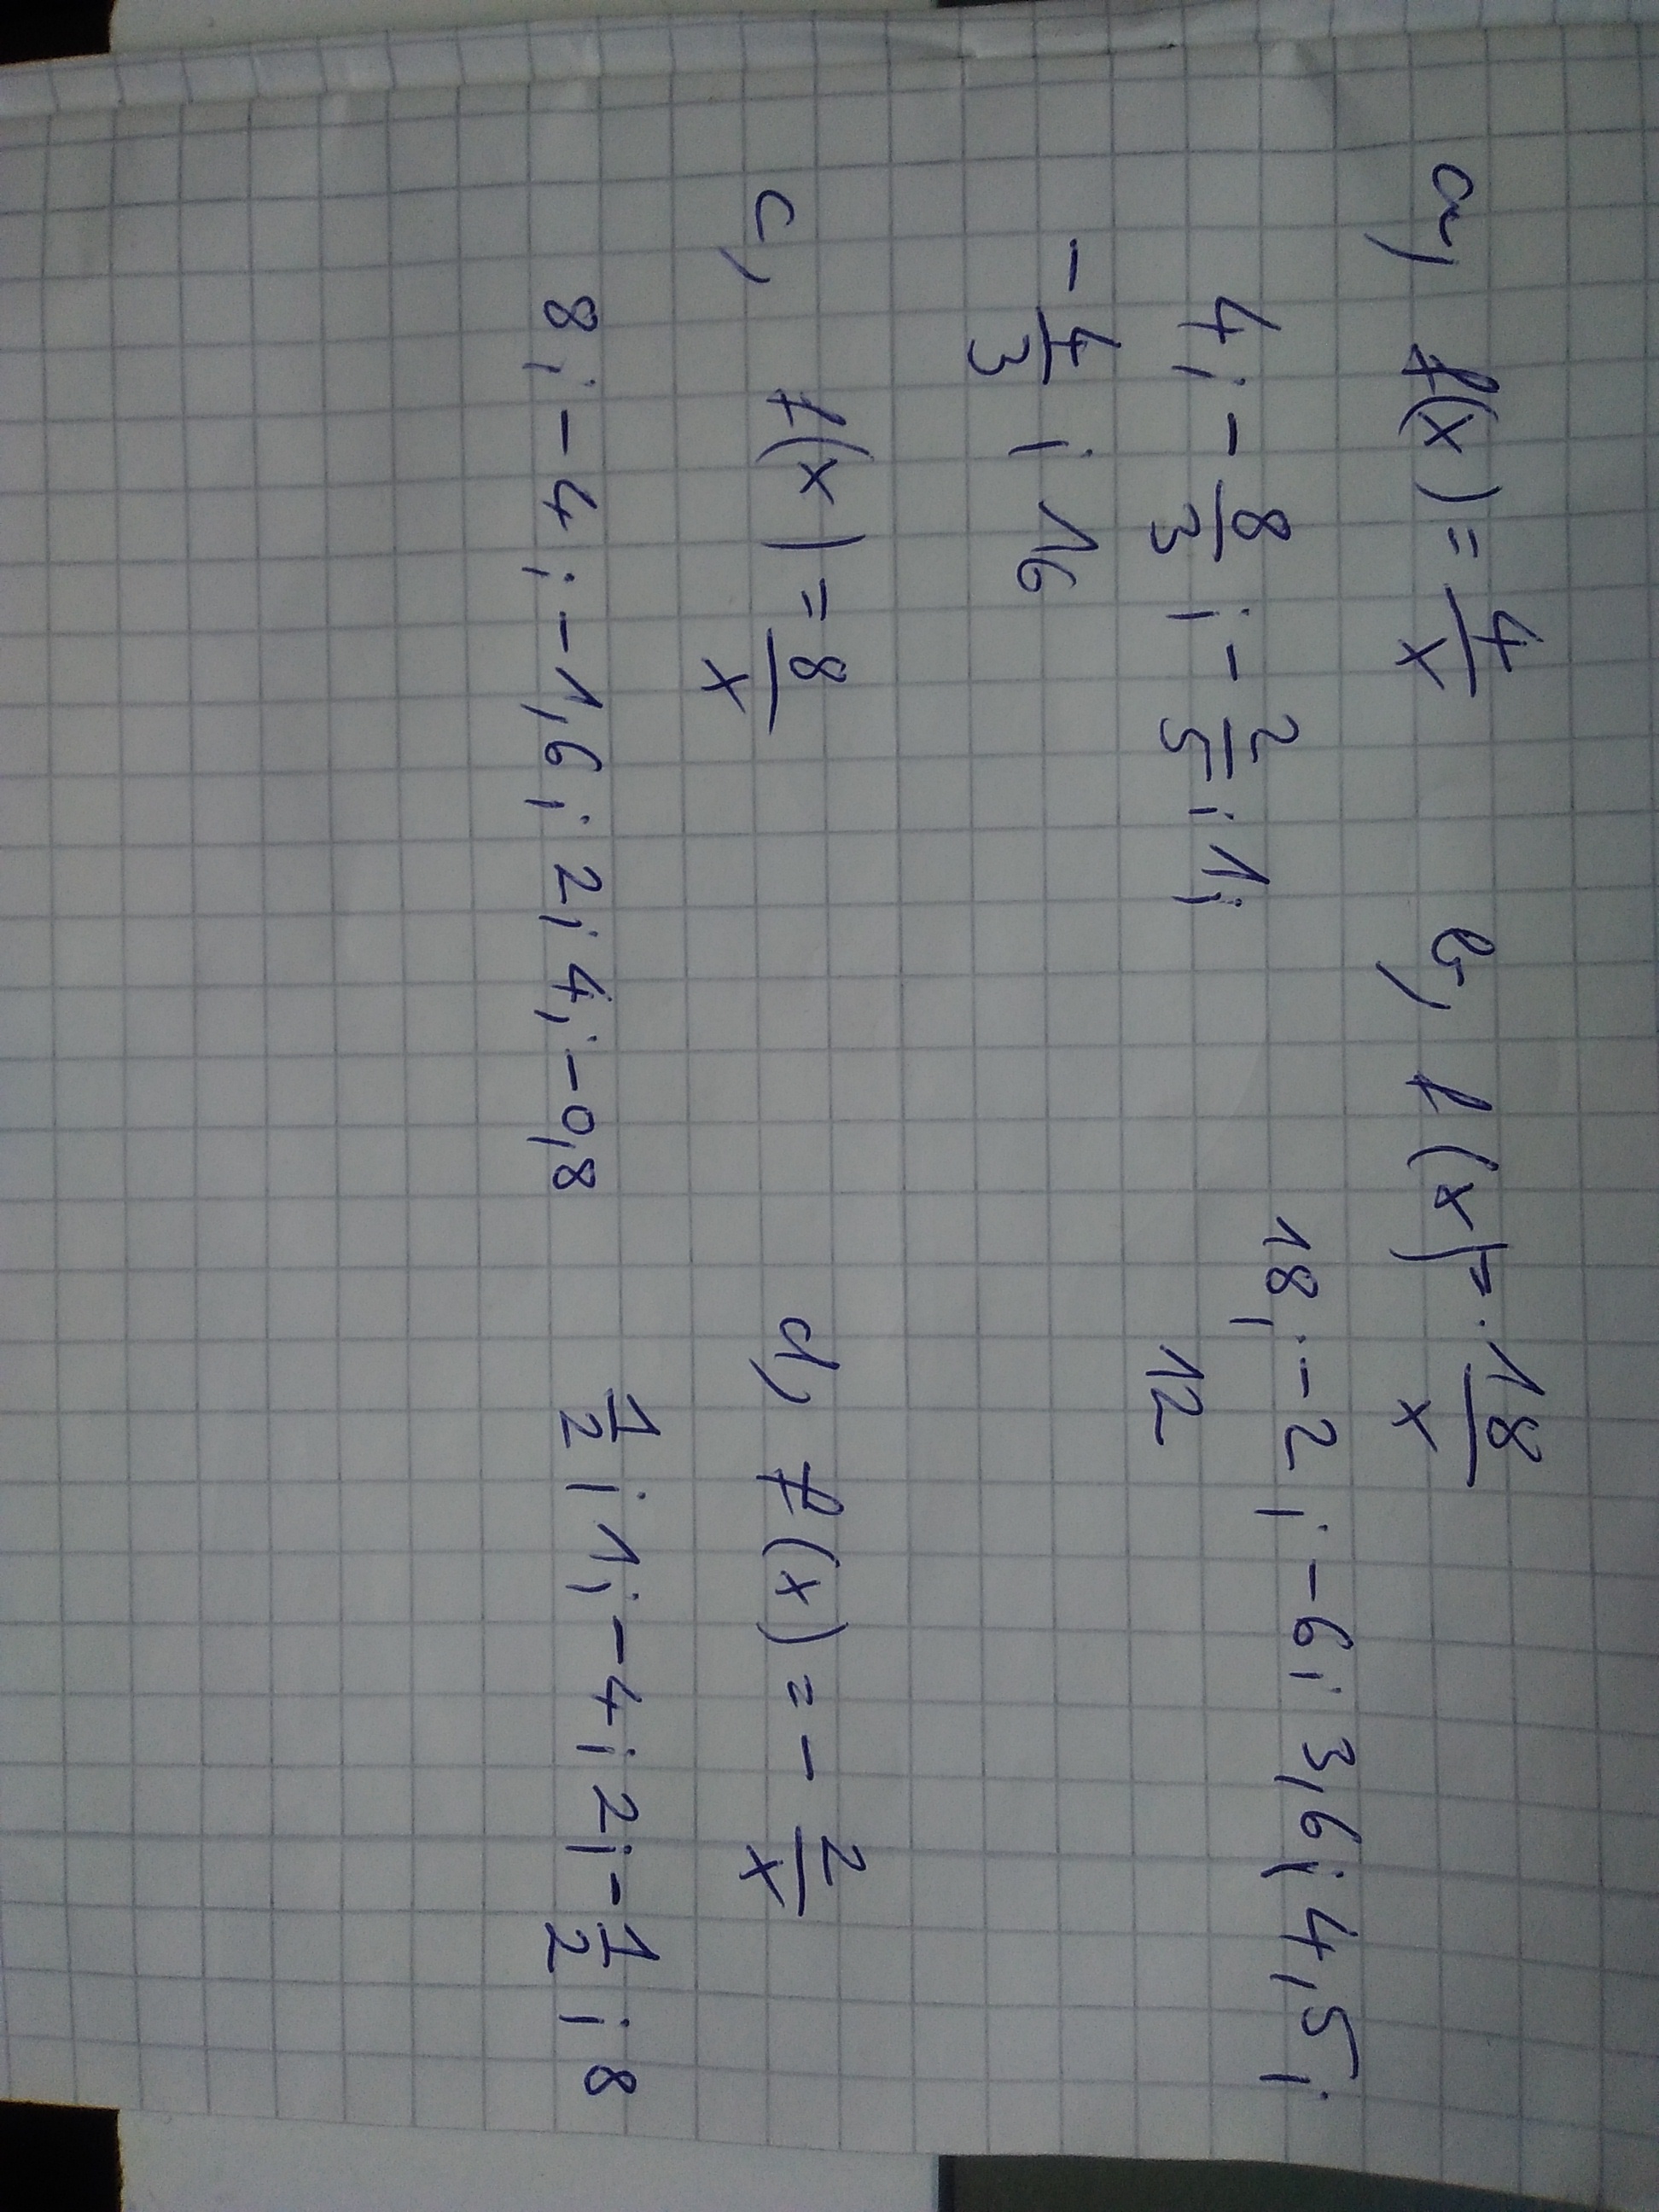 a) f(x) = 4/x
b) f(x) = 18/x
4; -8/3; -2/5; 1;
-4/3; 16
18; -2; -6; 3,6; 4,5;
12
c) f(x) = 8/x
d) f(x) = -2/x
8; -4; -1,6; 2; 4; -0,8
1/2; 1; -4; 2; -1/2; 8